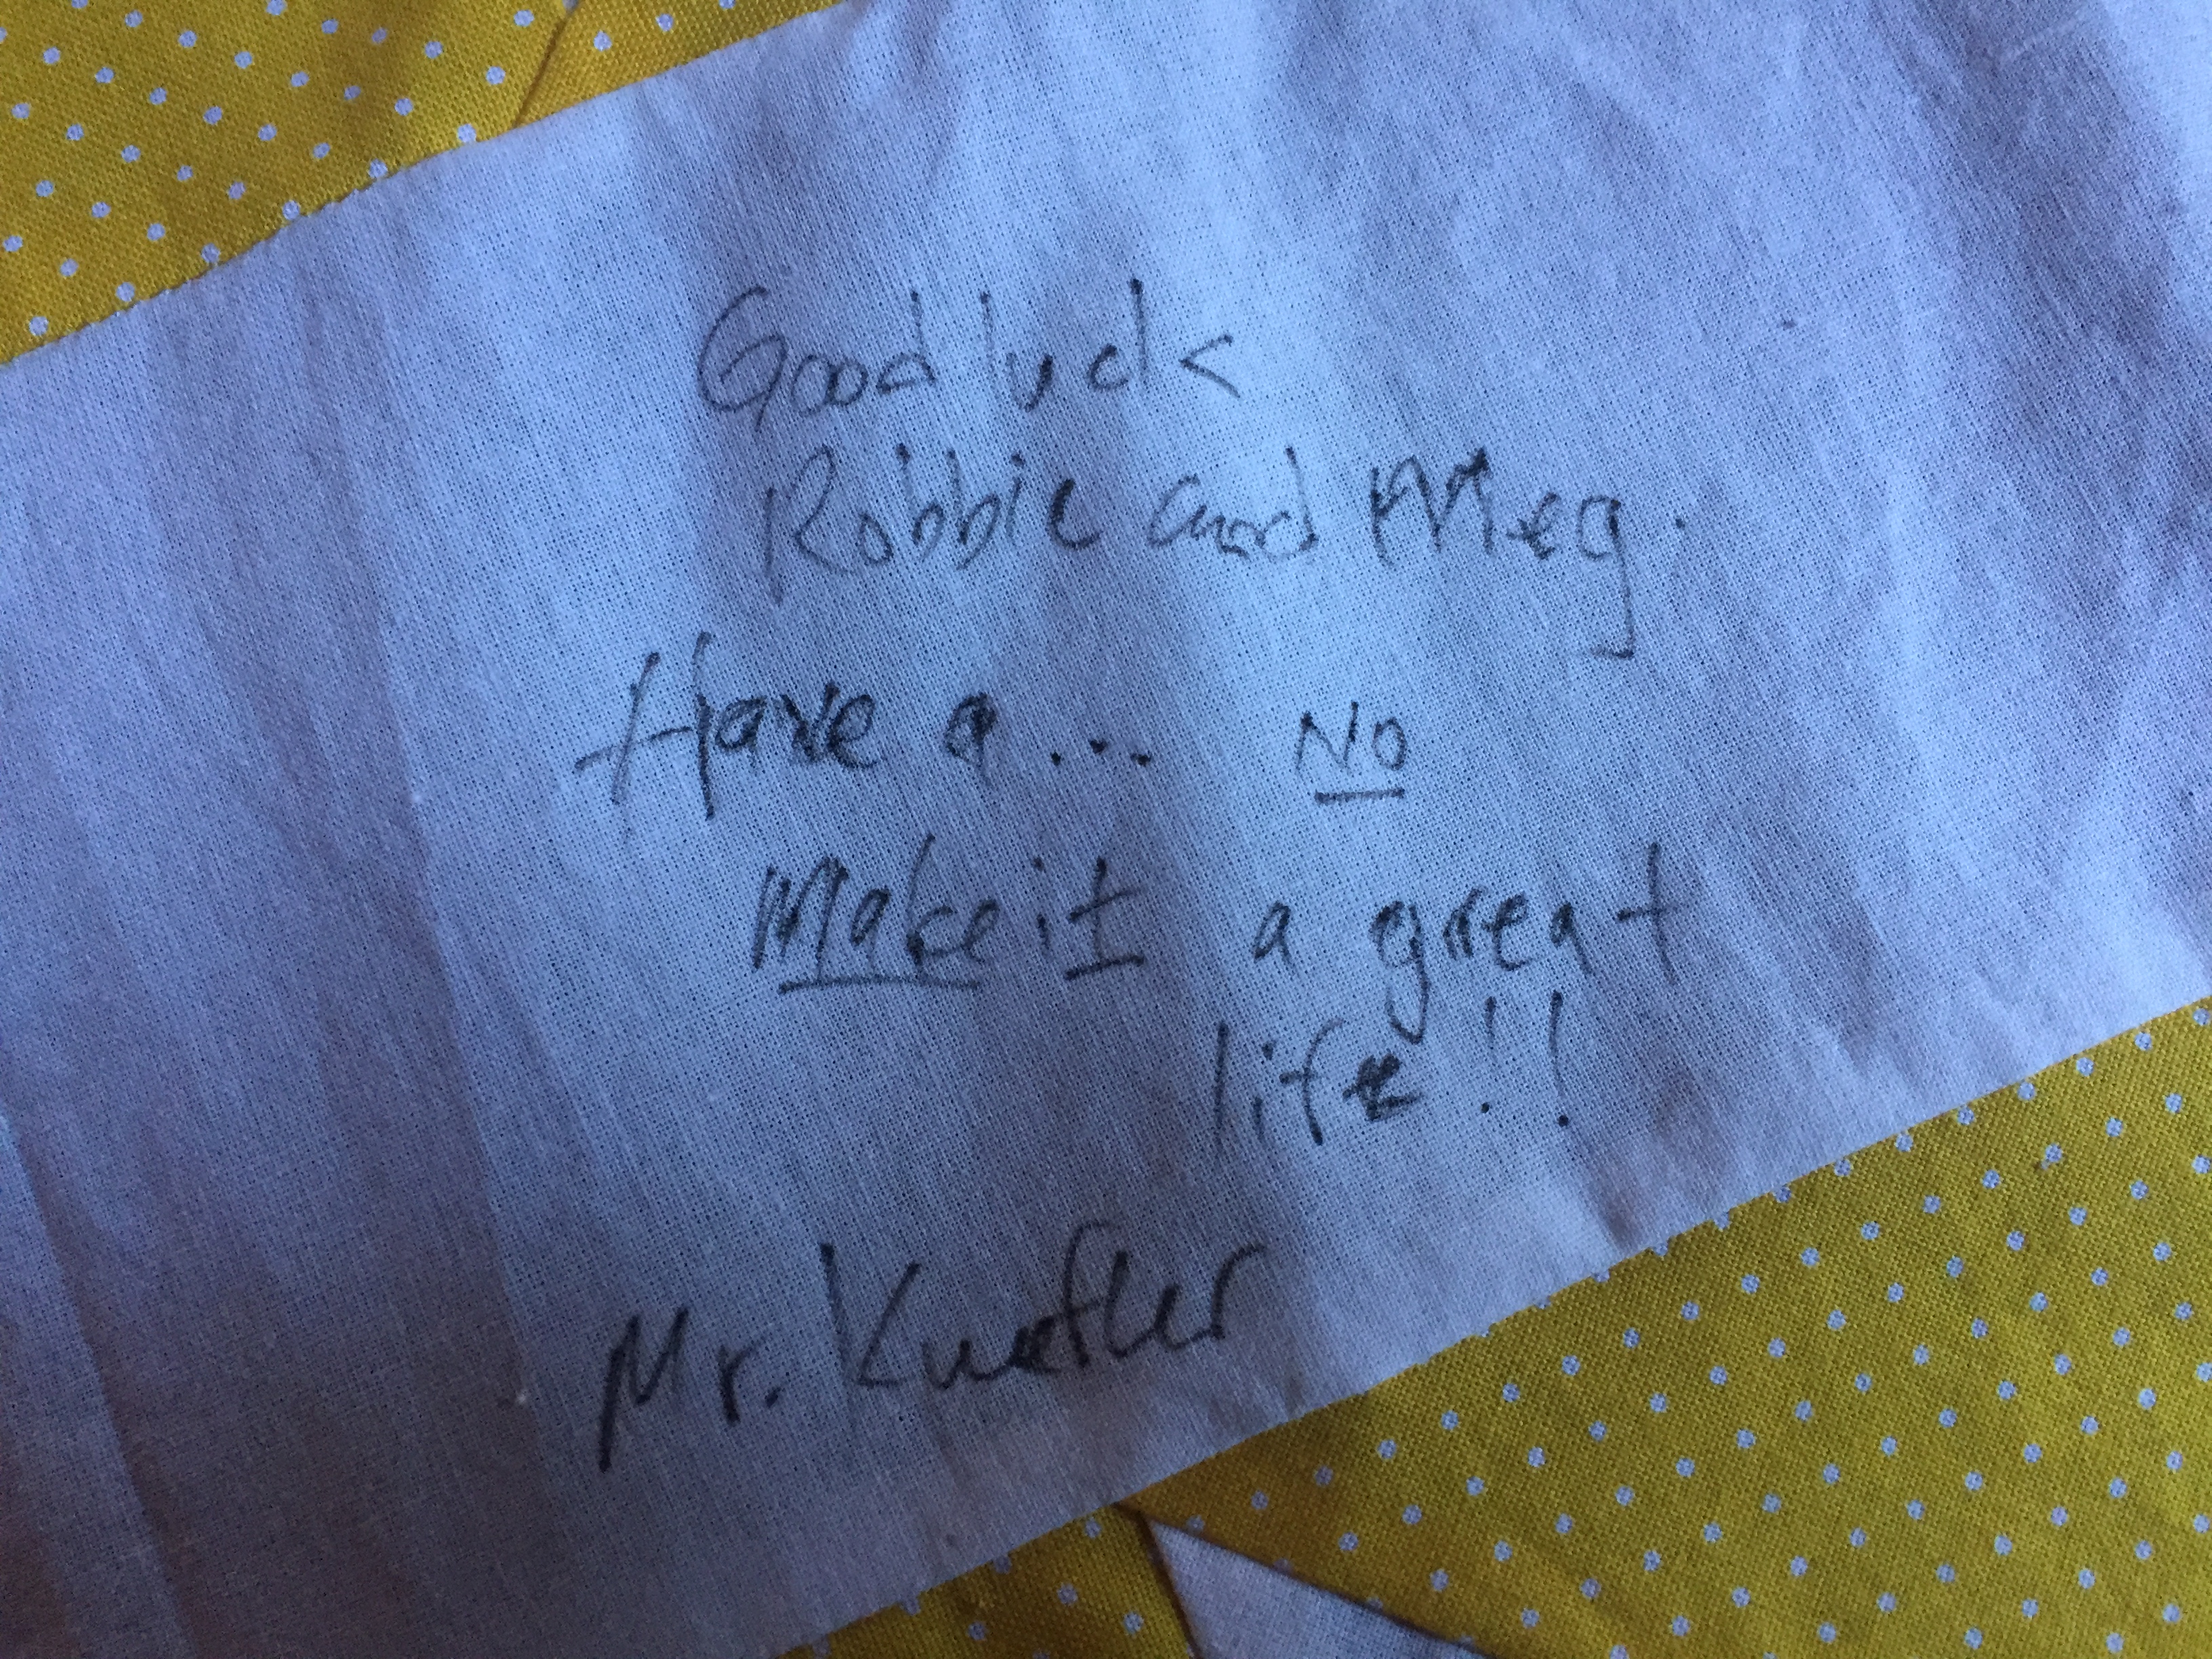 Good luck
Robbie and Meg.
Have a... No
Make it a great
life!!
Mr. Kuefler